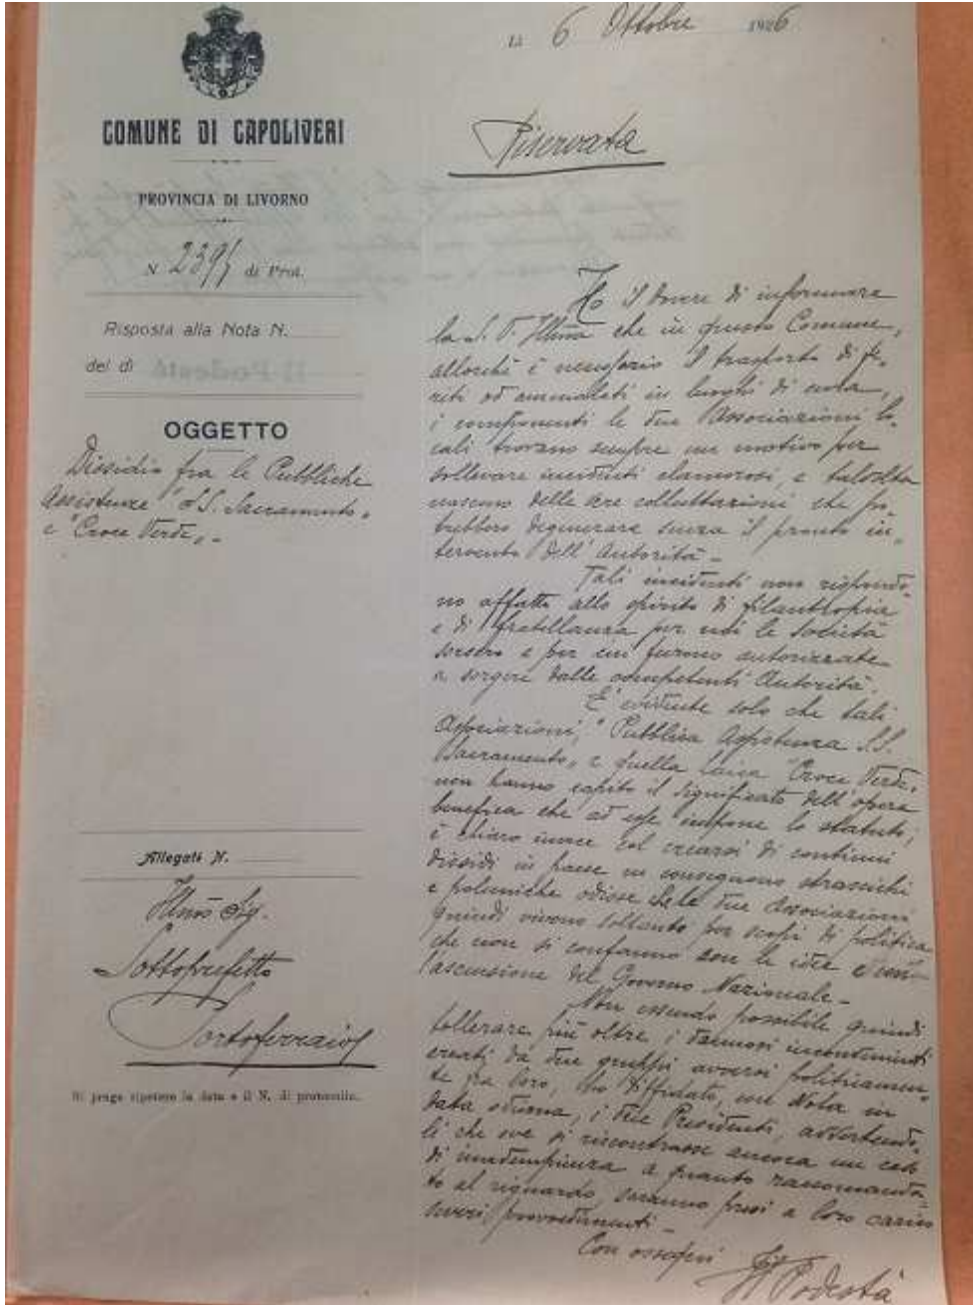 li 6 Ottobre 1926
COMUNE DI CAPOLIVERI
PROVINCIA DI LIVORNO
N 2395 di Prot.
Risposta alla Nota N.
del dì
OGGETTO
Dissidio fra le Pubbliche
Assistenze "SS. Sacramento„
e "Croce Verde„ -
Allegati N.
Illmo Sig.
Sottoprefetto
Portoferraio
Si prega ripetere la data e il N. di protocollo.
Riservata
Ho il dovere di informare
la S. V. Illma che in questo Comune,
allorchè è necessario il trasporto di fe-
riti od ammalati in luoghi di cura,
i componenti le due Associazioni lo-
cali trovano sempre un motivo per
sollevare incidenti clamorosi, e talvolta
nascono delle vere colluttazioni che po-
trebbero degenerare senza il pronto in-
tervento dell'Autorità -
Tali incidenti non rispondo-
no affatto allo spirito di filantropia
e di fratellanza per cui le Società
sorsero e per cui furono autorizzate
a sorgere dalle competenti Autorità.
È evidente solo che tali
Associazioni, "Pubblica Assistenza S.S.
Sacramento„ e quella laica "Croce Verde„
non hanno capito il significato dell'opera
benefica che ad esse impone lo statuto;
è chiaro invece col crearsi di continui
dissidi in paese ne conseguono strascichi
e polemiche odiose che le due Associazioni
quindi vivono soltanto per scopi di politica
che non si confanno con le idee e con
l'ascensione del Governo Nazionale -
Non essendo possibile quindi
tollerare più oltre i dannosi inconvenienti
creati da due gruppi avversi politicamen-
te fra loro, ho diffidato, con Nota in
data odierna, i due Presidenti, avvertendo-
li che ove si riscontrasse ancora un caso
di inadempienza a quanto raccomanda-
to al riguardo, saranno presi a loro carico
severi provvedimenti -
Con ossequi
Il Podestà